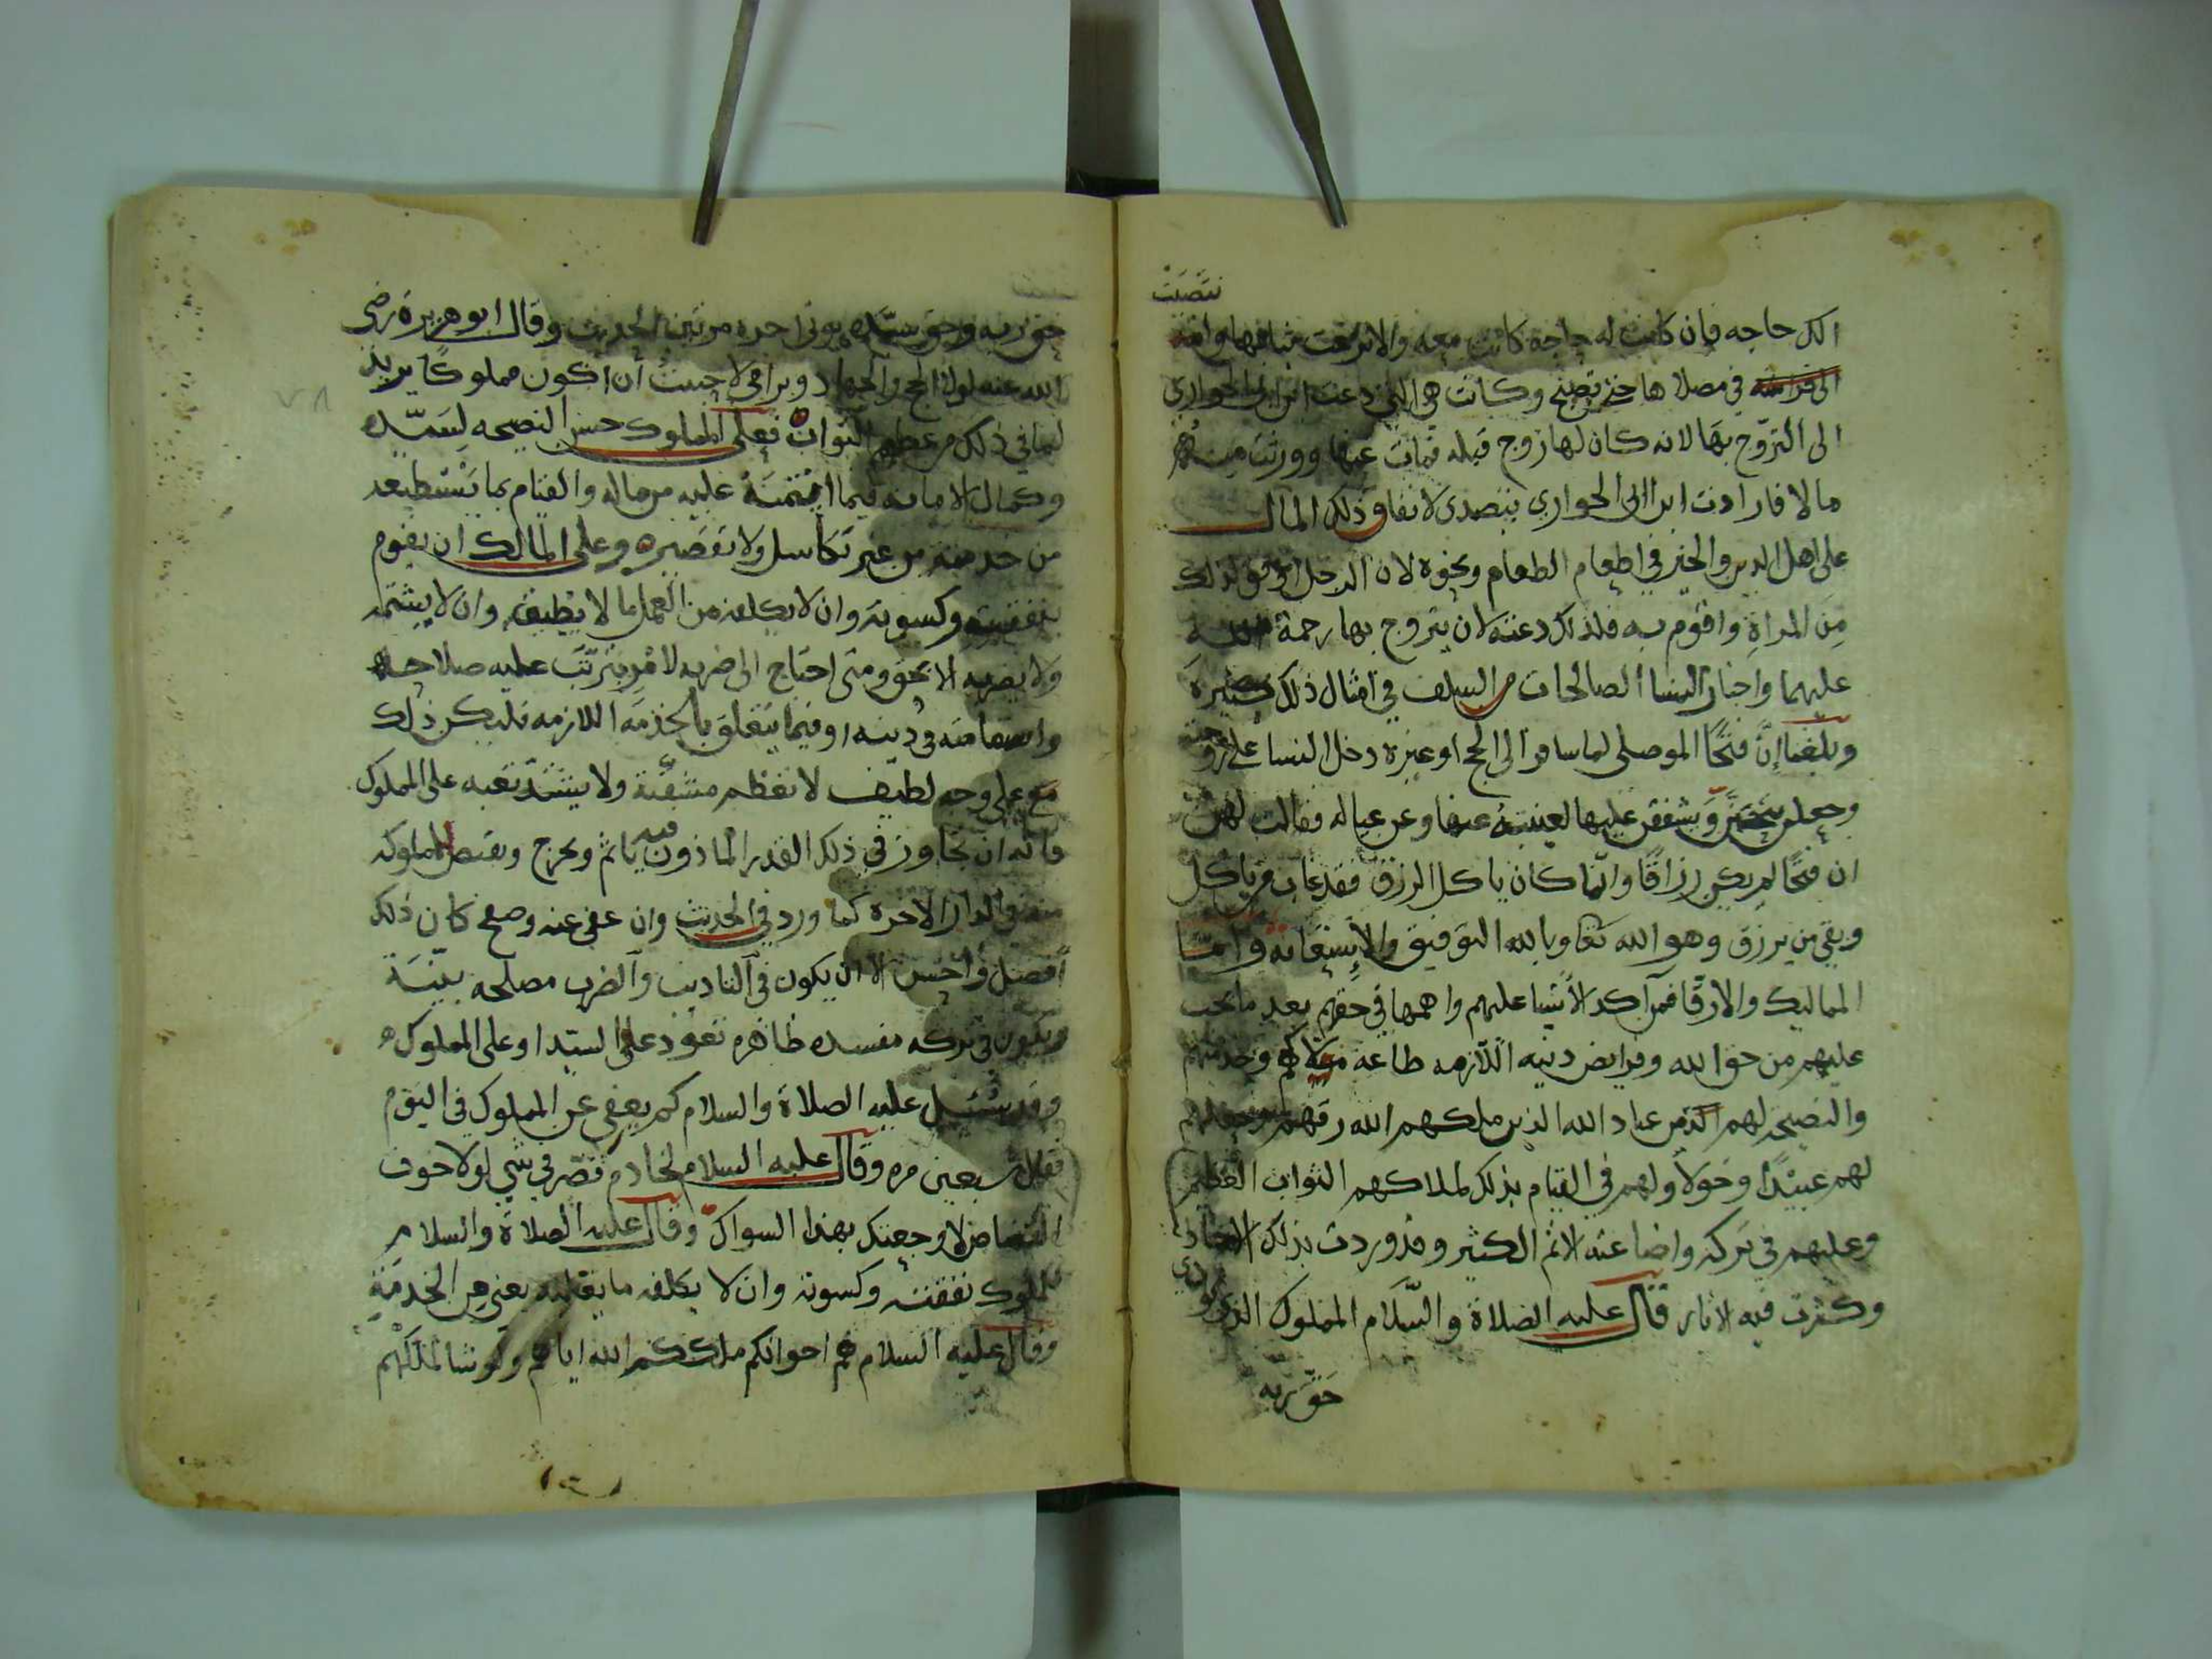 نتصبت
الك حاجه فان كانت له حاجة كانت معه والا نزعت ثيابها واقبه
الى قراشه في مصلاها حتى تصبح وكانت هي التي دعت ابن ابي الحواري
الى التزوّج بها لانه كان لها زوج قبله فمات عنها وورثت منه
مالا فارادت ابن ابى الحواري يتصدى لانفاق ذلك المال
على اهل الدين والخير في اطعام الطعام ونحوه لان الرجل اوثق لذلك
مِن المراةِ واقوم به فلذلك دعته لان يتزوج بها رحمة الله
عليهما واخبار النسا الصالحات من السلف في امثال ذلك كثيرة
وبلغنا إنّ فتحًا الموصلى لما سافر الى الحج او غيره دخل النسا على زوجته
وجعلن يتحزن ويشفقن عليها لغيبتهُ عنها وعن عياله فقالت لهن
ان فتحًا لم يكن رزاقًا وانّما كان ياكل الرزق فقد غاب من ياكل
وبقي من يرزق وهو الله تعا وبالله التوفيق والإِستعانه وامّا
المماليك والارقّا فمن آكد الأشيا عليهم واهمها في حقهم بعد ما يجب
عليهم من حق الله وفرايض دنيه اللّازمه طاعة مواليهم وخدمتهم
والنصيحه لهم الذ من عباد الله الذين ملكهم الله رقهم وجعلهم
لهم عبيْدًا وخولاً ولهم في القيام بذلك لملاكهم الثواب العظيم
وعليهم في تركه واضاعته الاثم الكثير وقد وردت بذلك الاخبار
وكثرت فيه الاثار قال عليه الصلاة والسّلام المملوك الذي يودي
حَقّ ربه
حق ربه وحق سيّده يوتى اجره مرتين الحديث وقال ابو هريرة رضي
الله عنه لولا الحج والجهاد وبر امي لاحببتُ أن اكون مملوكًا يريد
لما في ذلك من عظيم الثواب فعلى المملوك حسن النصيحه لسَيّده
وكمال الامانه فيما ائتمنهُ عليه من ماله والقيام بما يَسْتطيعه
من خدمته من غير تكاسل ولا تقصيره وعلى المالك ان يقوم
بنفقته وكسوته وان لا يكلفه من العمل ما لا يطيقه وان لا يشتمه
ولا يضربه الا بحق ومتى احتاج الى ضربه لامْرٍ يترتّب عليه صلاحه
واستقامته في دينه او فيما يتعلق بالخذمه اللازمه فليكن ذلك
مع على وجه لطيف لا تعظم مشقّتة ولا يشتدّ تعبه على المملوك
فانه ان تجاوز في ذلك القدر الماذون فيه ياثم ويحرج ويقتص للمملوكه
منه في الدار الاخره كما ورد في الحديث وان عفى عنه وصفح كان ذلك
افضل وأحسن الا ان يكون في التاديب والضرب مصلحه بيّنة
ويكون في تركه مفسده ظاهره تعود على السيّد او على المملوك
وقد سُئيل عليه الصلاة والسلام كم يعفى عن المملوك في اليوم
فقال سبعين مره وقال عليه السلام لخادم قصّر في شي لولا خوف
القصاص لاوجعتك بهذا السواك وقال عليه الصلاة والسلام
للملوك نفقته وكسوته وان لا يكلفه ما يغلبه يعني من الخدمَةِ
وقال عليه السلام هم اخوانكم ملككم الله اياهم ولو شا لملكهم
٧٨